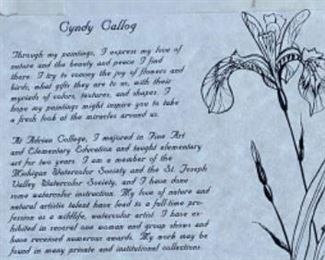 Cyndy Callog
Through my paintings, I express my love of
nature and the beauty and peace I find
there. I try to convey the joy of flowers and
birds, what gifts they are to us, with their
myriads of colors, textures, and shapes. I
hope my paintings might inspire you to take
a fresh look at the miracles around us.
At Adrian College, I majored in Fine Art
and Elementary Education and taught elementary
art for two years. I am a member of the
Michigan Watercolor Society and the St. Joseph
Valley Watercolor Society, and I have done
some watercolor instruction. My love of nature and
natural artistic talent have lead to a full-time pro-
fession as a wildlife, watercolor artist. I have ex-
hibited in several one woman and group shows and
have received numerous awards. My work may be
found in many private and institutional collections.